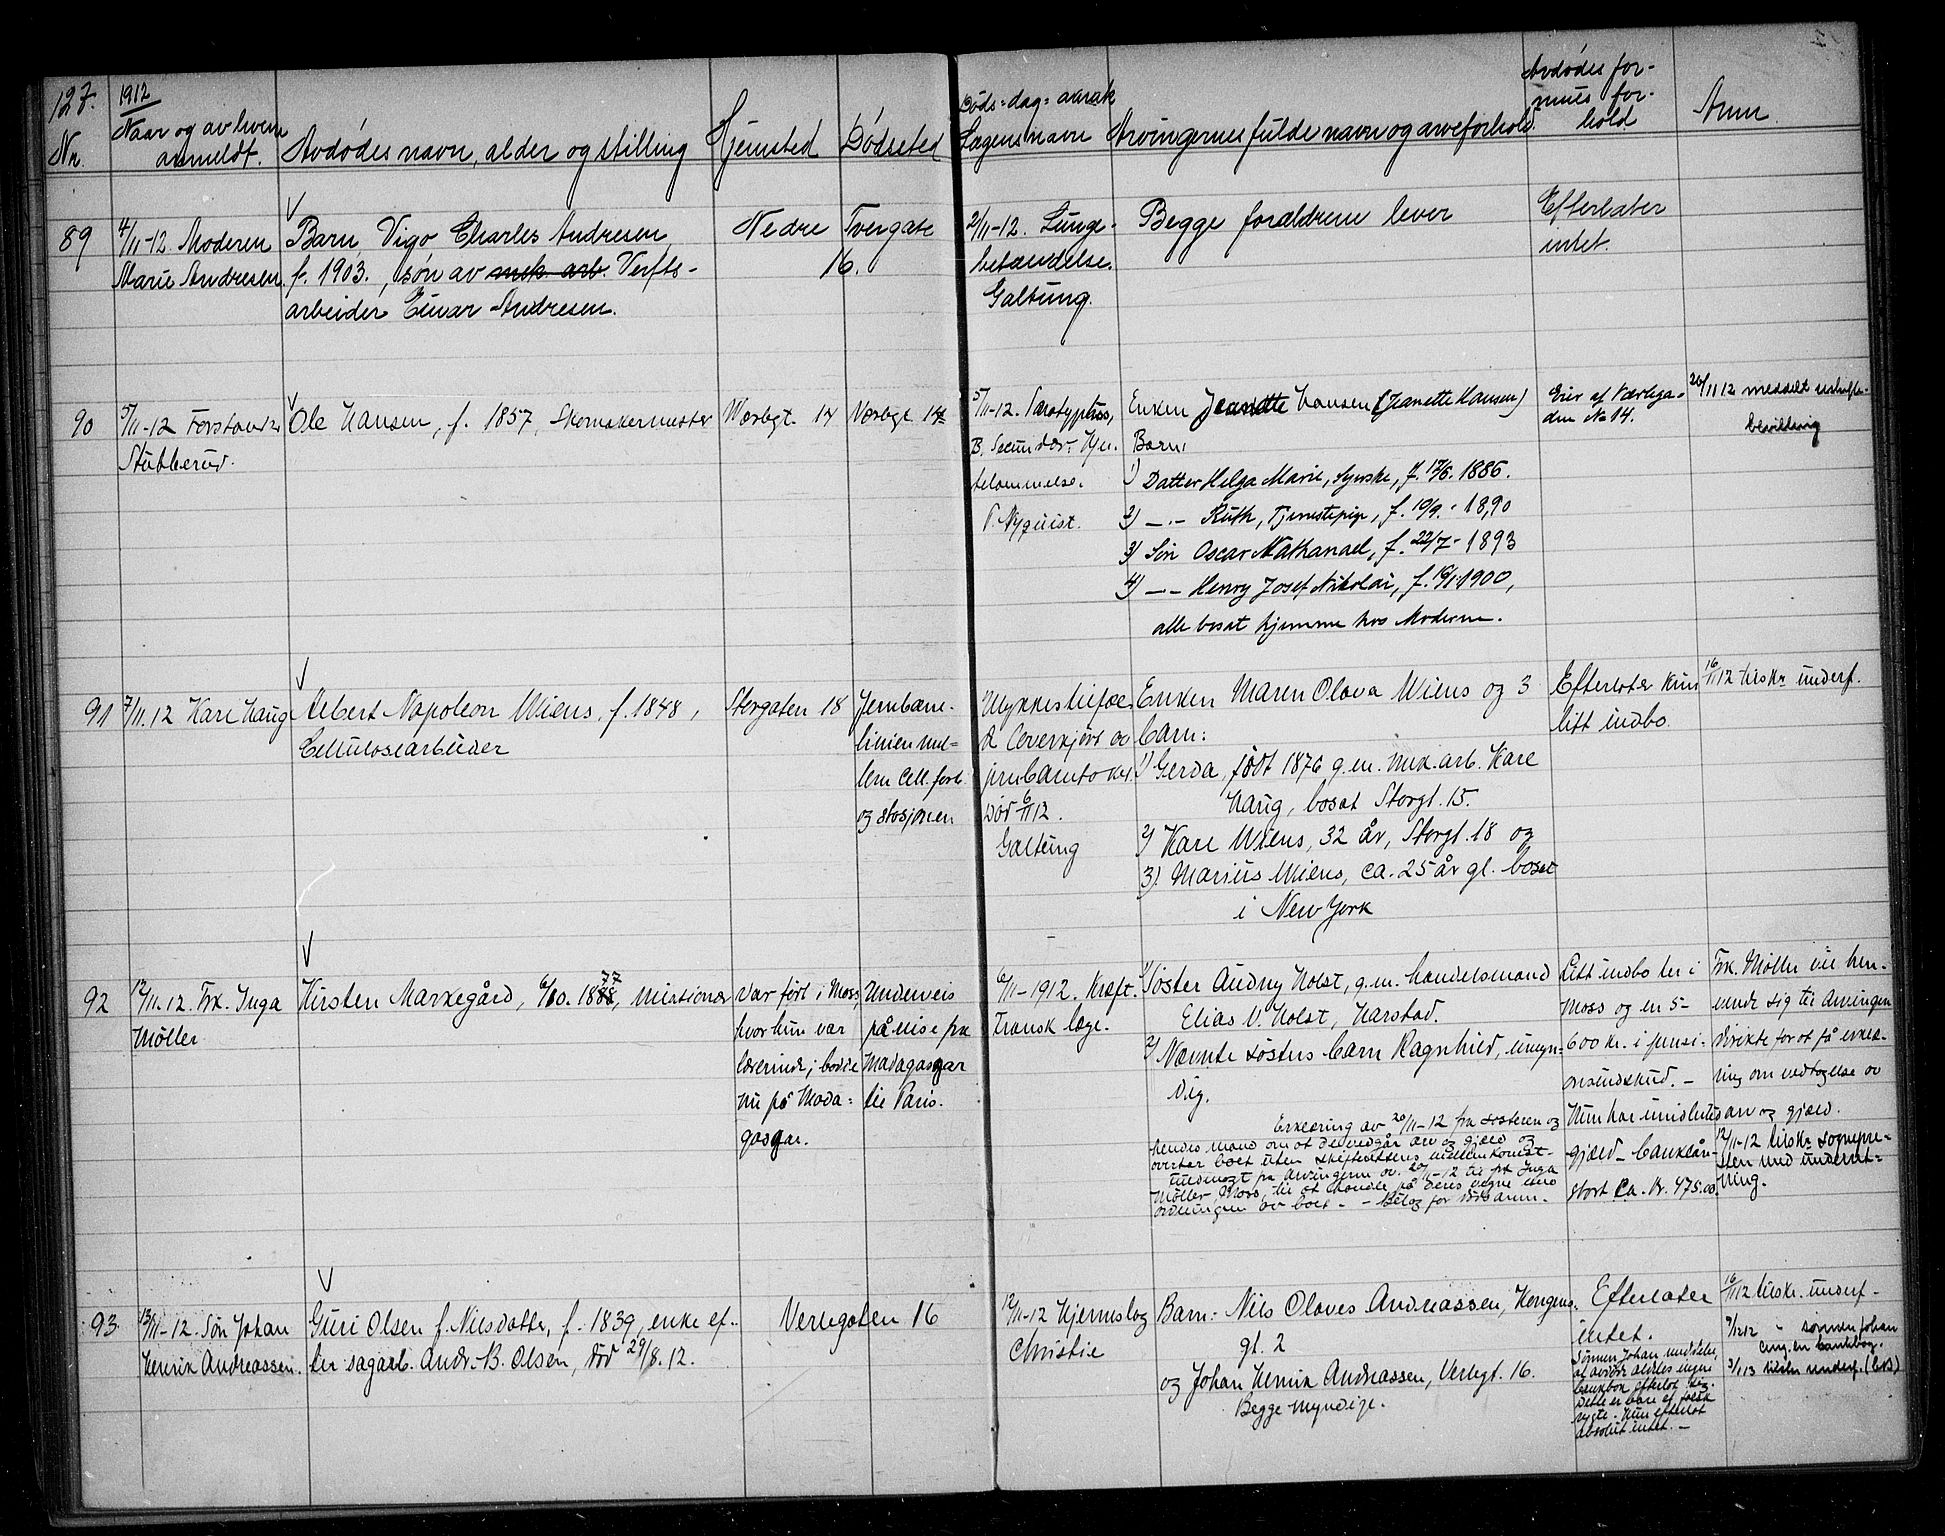 127.
1912
Nr.
Naar og av hvem
anmeldt.
Avdødes navn, alder og stilling
Hjemsted
Dødssted
Døds=dag=aarsak
Lægens navn
Arvingernes fulde navn og arveforhold.
Avdødes for-
mues for-
hold
Anm.
89
4/11-12. Moderen
Marie Andresen.
Barn Vigo Charles Andresen,
f. 1903., søn av mek. arb. Verfts-
arbeider Einar Andresen.
Nedre Tvergate
16.
2/11-12. Lunge-
betændelse.
Galtung.
Begge forældrene lever
Efterlater
intet.
90
5/11-12 Forstander
Stubberud.
Ole Hansen, f. 1857, Skomakermester
Værlegt. 14
Værlegt 14
5/11-12. Paratyphus,
B. Secundær. Hjer.
telammelse.
P. Nyquist.
Enken Jeanette Hansen (Jeanette Hansen)
Barn:
1) Datter Helga Marie, Syerske, f. 12/6. 1886.
2) —·— Ruth, Tjenestepige, f. 10/9. 1890
3) Søn Oscar Nathanael, f. 22/7- 1893
4) —·— Henry Josef Nikolai, f. 10/1.1900,
alle bosat hjemme hos Moderen.
Eier af Værlega-
den No 14.
20/11 12 meddelt uskifte-
bevilling
91
7/11.12 Kare Haug
Albert Napoleon Wiens, f. 1848,
Cellulosearbeider
Storgaten 18
Jernbane-
linien mel-
lem Cell. fabr.
og stasjonen
Ulykkestilfæl-
de Overkjørt av
jernbanetoget.
Død 6/11 12.
Galtung
Enken Maren Olava Wiens og 3
barn:
1) Gerda, født 1876 g.m. mek. arb. Kare
Haug, bosat Storgt. 15.
2) Kare Wiens, 32 år, Storgt. 18 og
3). Marius Wiens, ca. 25 år gl. bosat
i New York
Efterlater kun
litt indbo.
16/11 12 tilskr. underf.
92
12/11.12. Frk. Inga
Møller
Kirsten Markegård, 6/10. 1888, 77 missionær
Var ført i Moss
hvor hun var
lærerinde; bodde
nu på Mada-
gasgar.
Underveis
på reise fra
Madagasgar
til Paris.
6/11-1912. Kræft.
Fransk læge.
1) Søster Audny Holst, g.m. handelsmand
Elias V. Holst, Harstad.
2) Nævnte søsters barn Ragnhild, umyn-
dig.
Erklæring av 20/11-12 fra søsteren og
hendes mand om at de vedgår arv og gjæld og
overtar boet uten skifterettens mellemkomst-
fuldmagt fra arvingerne av 20/11-12 til frk Inga
Møller, Moss, til at handle på deres vegne med
ordningen av boet. — Bilag for dødsanm.
Litt indbo her i
Moss og en 5-
600 kr. i pensi-
onsindskud. —
Hun har imidlertid
gjæld — banklån-
stort ca. kr. 475.00.
Frk. Møller vil hen-
vende sig til arvingen
direkte for at få erklæ-
ring om vedtagelse av
arv og gjæld.
12/11-12 tilskr. sognepre-
sten med underret-
ning.
93
13/11-12. Søn Johan
Henrik Andreassen.
Guri Olsen f. Nilsdatter, f. 1839, enke ef-
ter sagarb. Andr. B. Olsen, død 29/8.12.
Verlegaten 16
12/11-12 Hjerneslag
Christie
Barn: Nils Olaves Andreassen, Kongens
gt. 2
og Johan Henrik Andreassen, Verlegt. 16.
Begge myndige.
Efterlater
intet.
Sønnen Johan meddeler,
at avdøde aldeles ingen
bankbok efterlot sig.
Dette er bare et falsk
rygte. Hun efterlot
absolut intet. —
16/11 12 tilskr. underf-
9/12 12 — sønnen Johan
ang. en bankbog.
3/1 13 tilskr. underf.